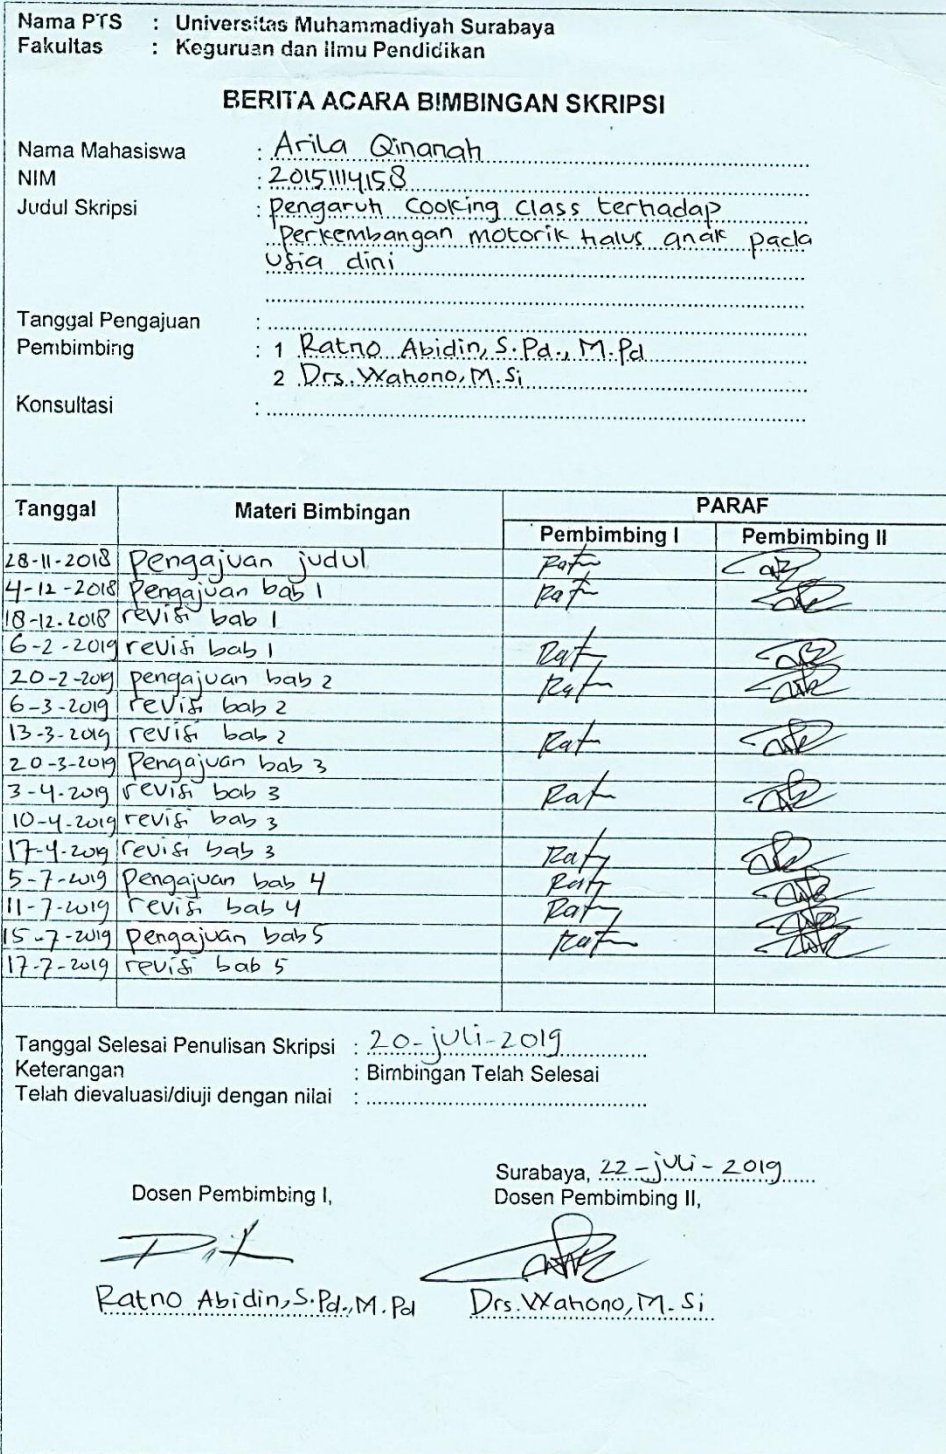 Nama PTS : Universitas Muhammadiyah Surabaya
Fakultas : Keguruan dan Ilmu Pendidikan
BERITA ACARA BIMBINGAN SKRIPSI
Nama Mahasiswa : Arila Qinanah
NIM : 20151114158
Judul Skripsi : pengaruh cooking class terhadap
perkembangan motorik halus anak pada
usia dini
Tanggal Pengajuan :
Pembimbing : 1 Ratno Abidin, S.Pd., M.Pd
2 Drs. Wahono, M.Si
Konsultasi :
Tanggal Materi Bimbingan PARAF
Pembimbing I Pembimbing II
28-11-2018 pengajuan judul
4-12-2018 pengajuan bab 1
18-12-2018 revisi bab 1
6-2-2019 revisi bab 1
20-2-2019 pengajuan bab 2
6-3-2019 revisi bab 2
13-3-2019 revisi bab 2
20-3-2019 pengajuan bab 3
3-4-2019 revisi bab 3
10-4-2019 revisi bab 3
17-4-2019 revisi bab 3
5-7-2019 pengajuan bab 4
11-7-2019 revisi bab 4
15-7-2019 pengajuan bab 5
17-7-2019 revisi bab 5
Tanggal Selesai Penulisan Skripsi : 20-juli-2019
Keterangan : Bimbingan Telah Selesai
Telah dievaluasi/diuji dengan nilai :
Surabaya, 22-juli-2019
Dosen Pembimbing I, Dosen Pembimbing II,
Ratno Abidin, S.Pd., M.Pd Drs. Wahono, M.Si